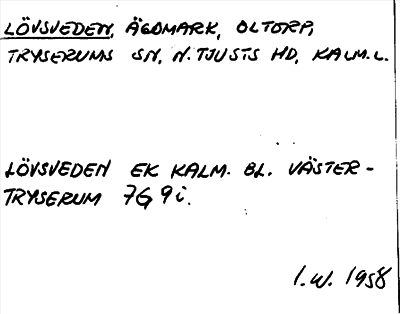 LÖVSVEDEN, ÄGOMARK, OLTORP,
TRYSERUMS SN, N. TJUSTS HD, KALM.L.
LÖVSVEDEN EK KALM. BL. VÄSTER-
TRYSERUM 7G 9i.
I.W. 1958